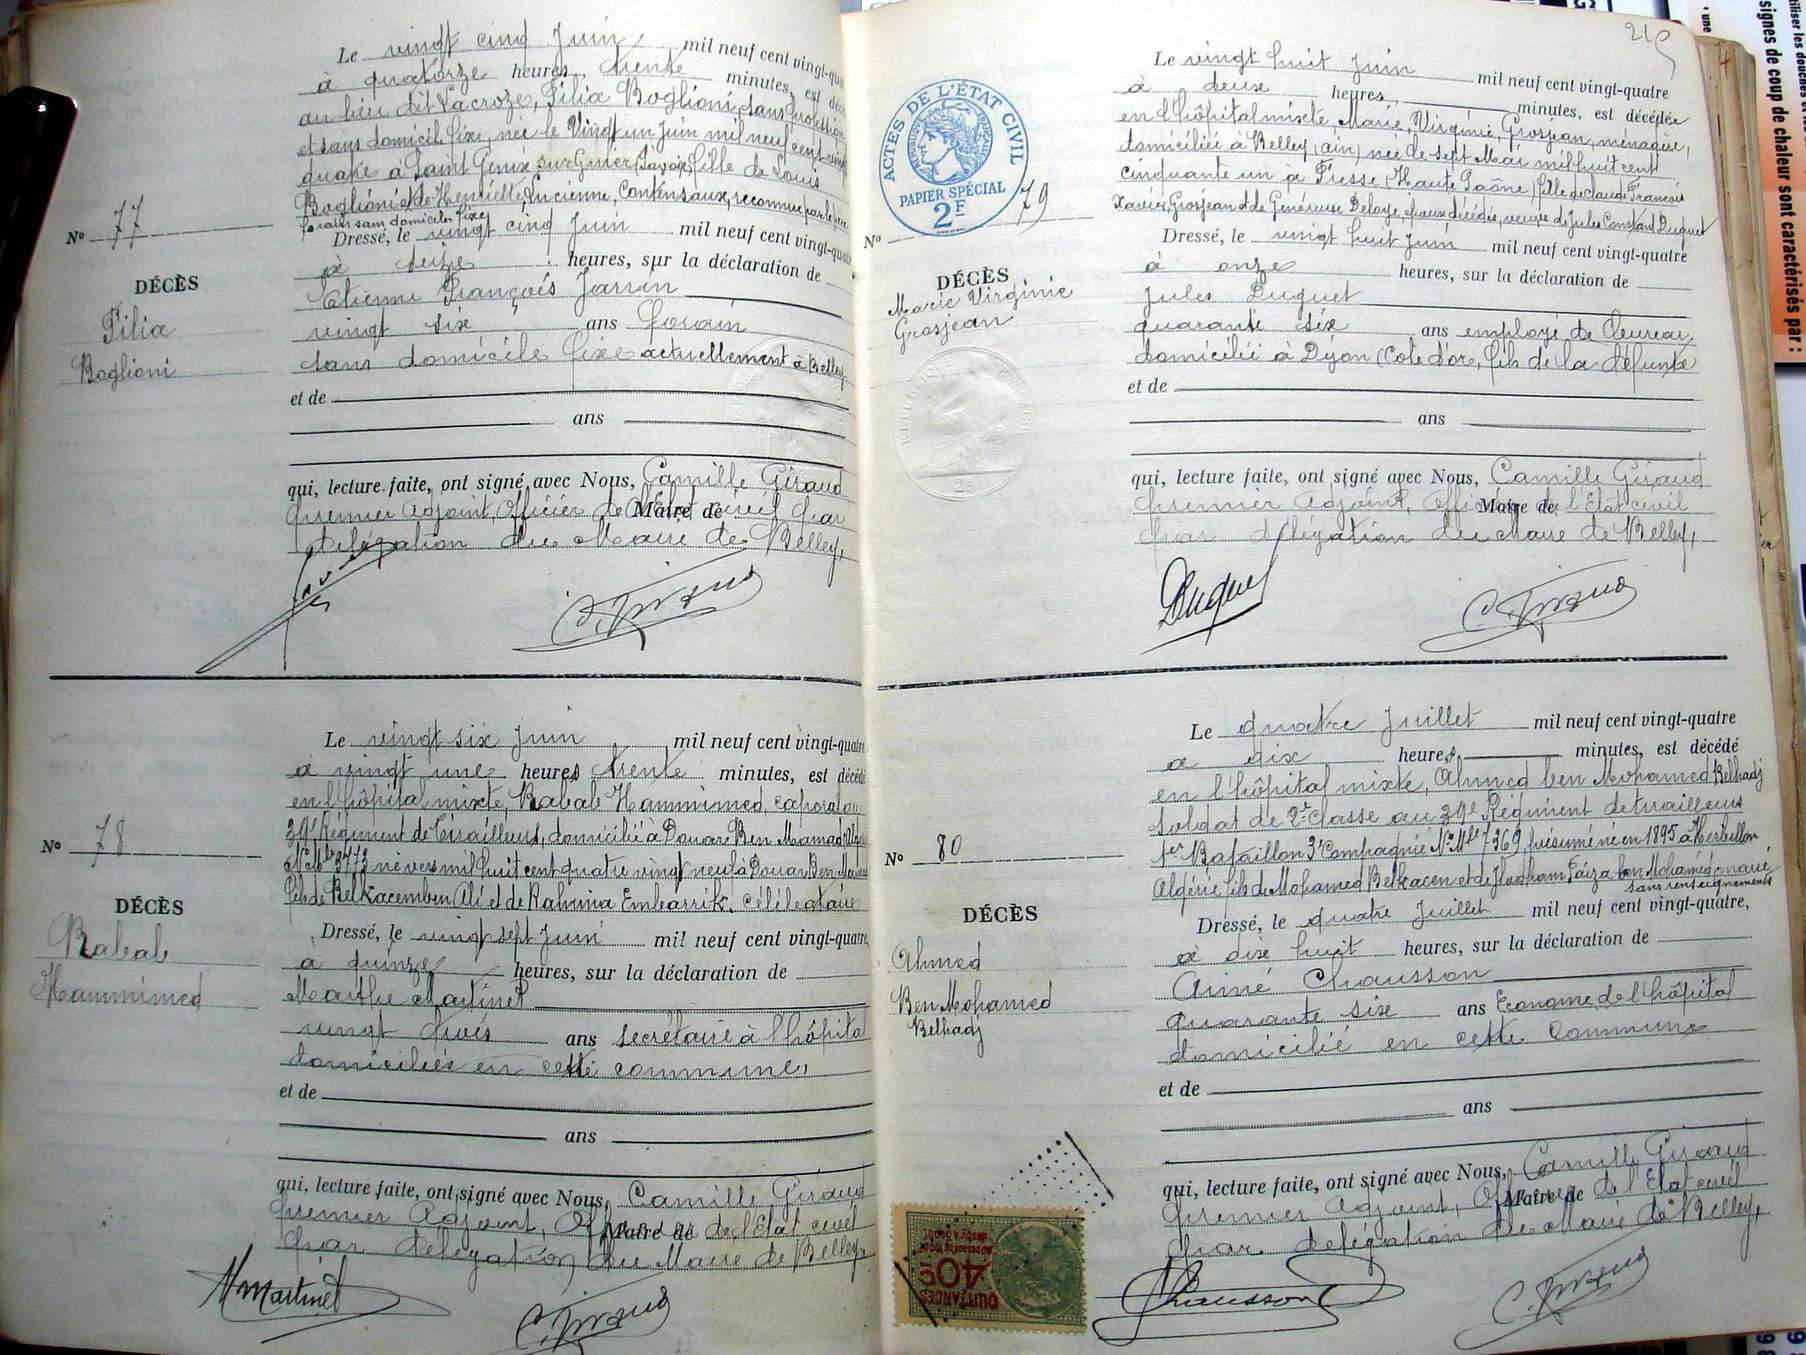 Le vingt cinq Juin mil neuf cent vingt-quatre
à quatorze heures, trente minutes, est
au lieu dit Lacroze, Filia Boglioni, sans profession
et sans domicile fixe, née le Vingt un Juin mil neuf cent vingt
quatre à Saint Genix sur Guier (Savoie) fille de Louis
Boglioni et de Henriette Lucienne, Contensaux, reconnue par le père
forain sans domicile fixe
Nº 77
Dressé, le vingt cinq Juin mil neuf cent vingt-quatre
à seize heures, sur la déclaration de
DÉCÈS
Filia
Boglioni
Etienne François Jarrin
vingt six ans forain
sans domicile fixe actuellement à Belley
et de
ans
qui, lecture faite, ont signé avec Nous, Camille Giraud
premier Adjoint, Officier de l'Etat civil par
Maire de
délégation du Maire de Belley,
C. Giraud
Le vingt six Juin mil neuf cent vingt-quatre
à vingt une heures trente minutes, est décédé
en l'hôpital mixte, Rabah Hammimed, caporal au
39e Régiment de Tirailleurs, domicilié à Douar Ben Mamad
Nº Mle 3773 né vers mil huit cent quatre vingt neuf à Douar Ben
fils de Belkacem ben Ali et de Rahmia Embarrik. célibataire
Nº 78
Dressé, le vingt sept Juin mil neuf cent vingt-quatre,
à quinze heures, sur la déclaration de
DÉCÈS
Rabah
Hammimed
Marthe Martinet
vingt trois ans secrétaire à l'hôpital
domiciliée en cette commune,
et de
ans
qui, lecture faite, ont signé avec Nous, Camille Giraud
premier Adjoint, Officier de l'Etat civil
Maire de
par délégation du Maire de Belley,
M Martinet
C. Giraud
215
Le vingt huit Juin mil neuf cent vingt-quatre
à deux heures, minutes, est décédée
en l'hôpital mixte Marie, Virginie, Grosjean, ménagère,
domiciliée à Belley (ain) née de sept Mai mil huit cent
cinquante un à Fresse (Haute Saône) fille de Claude François
Xavier, Grosjean et de Généreuse Deloye, époux décédés, veuve de Jules Constant Duquet
ACTES DE L'ÉTAT CIVIL
PAPIER SPÉCIAL
2F
Nº 79
Dressé, le vingt huit Juin mil neuf cent vingt-quatre
à onze heures, sur la déclaration de
DÉCÈS
Marie Virginie
Grosjean
Jules Duquet
quarante six ans employé de bureau,
domicilié à Dijon (Cote d'or, fils de la défunte
et de
ans
qui, lecture faite, ont signé avec Nous, Camille Giraud
premier Adjoint, Officier de l'Etat civil
Maire de
par délégation du Maire de Belley,
Duquet
C. Giraud
Le quatre Juillet mil neuf cent vingt-quatre
à dix heures, minutes, est décédé
en l'hôpital mixte, Ahmed ben Mohamed Belhadj
soldat de 2e classe au 39e Régiment de tirailleurs
1er Bataillon 3e Compagnie Nº Mle 7369, présumé né en 1895 à Herbillon
Algérie, fils de Mohamed Belkacem et de Faiza ben Mohamed marié
sans renseignements
Nº 80
Dressé, le quatre Juillet mil neuf cent vingt-quatre,
à dix huit heures, sur la déclaration de
DÉCÈS
Ahmed
Ben Mohamed
Belhadj
Aimé Chausson
quarante six ans Econome de l'hôpital
domicilié en cette commune
et de
ans
qui, lecture faite, ont signé avec Nous, Camille Giraud
premier Adjoint, Officier de l'Etat civil
Maire de
par délégation du Maire de Belley,
QUITTANCES
40c
Chausson
C. Giraud
signes de coup de chaleur sont caractérisés par :